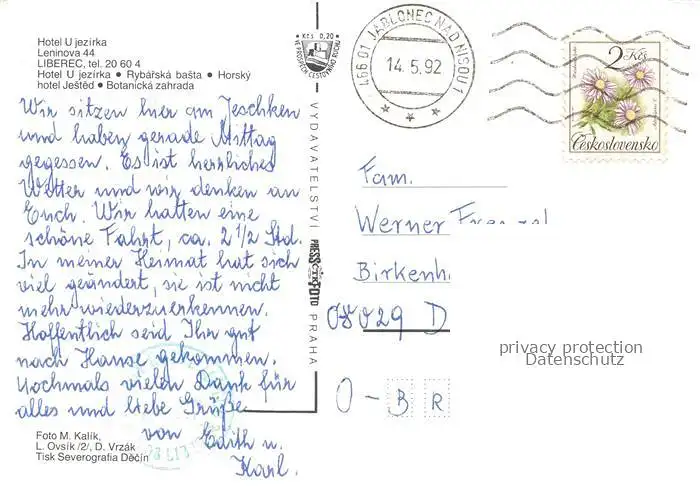 Hotel U jezírka
Leninova 44
LIBEREC, tel. 20 60 4
Hotel U jezírka • Rybářská bašta • Horský
hotel Ještěd • Botanická zahrada
Wir sitzen hier am Jeschken
und haben gerade Mittag
gegessen. Es ist herrliches
Wetter und wir denken an
Euch. Wir hatten eine
schöne Fahrt, ca. 2 1/2 Std.
In meiner Heimat hat sich
viel geändert, sie ist nicht
mehr wiederzuerkennen.
Hoffentlich seid Ihr gut
nach Hause gekommen.
Nochmals vielen Dank für
alles und liebe Grüße
von Edith u.
Karl.
Foto M. Kalík,
L. Ovsík /2/, D. Vrzák
Tisk Severografia Děčín
Kčs 0,20
VE PROSPĚCH CESTOVNÍHO RUCHU
VYDAVATELSTVÍ PRESSFOTO PRAHA
466 01 JABLONEC NAD NISOU 1
14.5.92
2 Kčs
Československo
Fam.
Werner
Birkenh
D
O - B R
privacy protection
Datenschutz